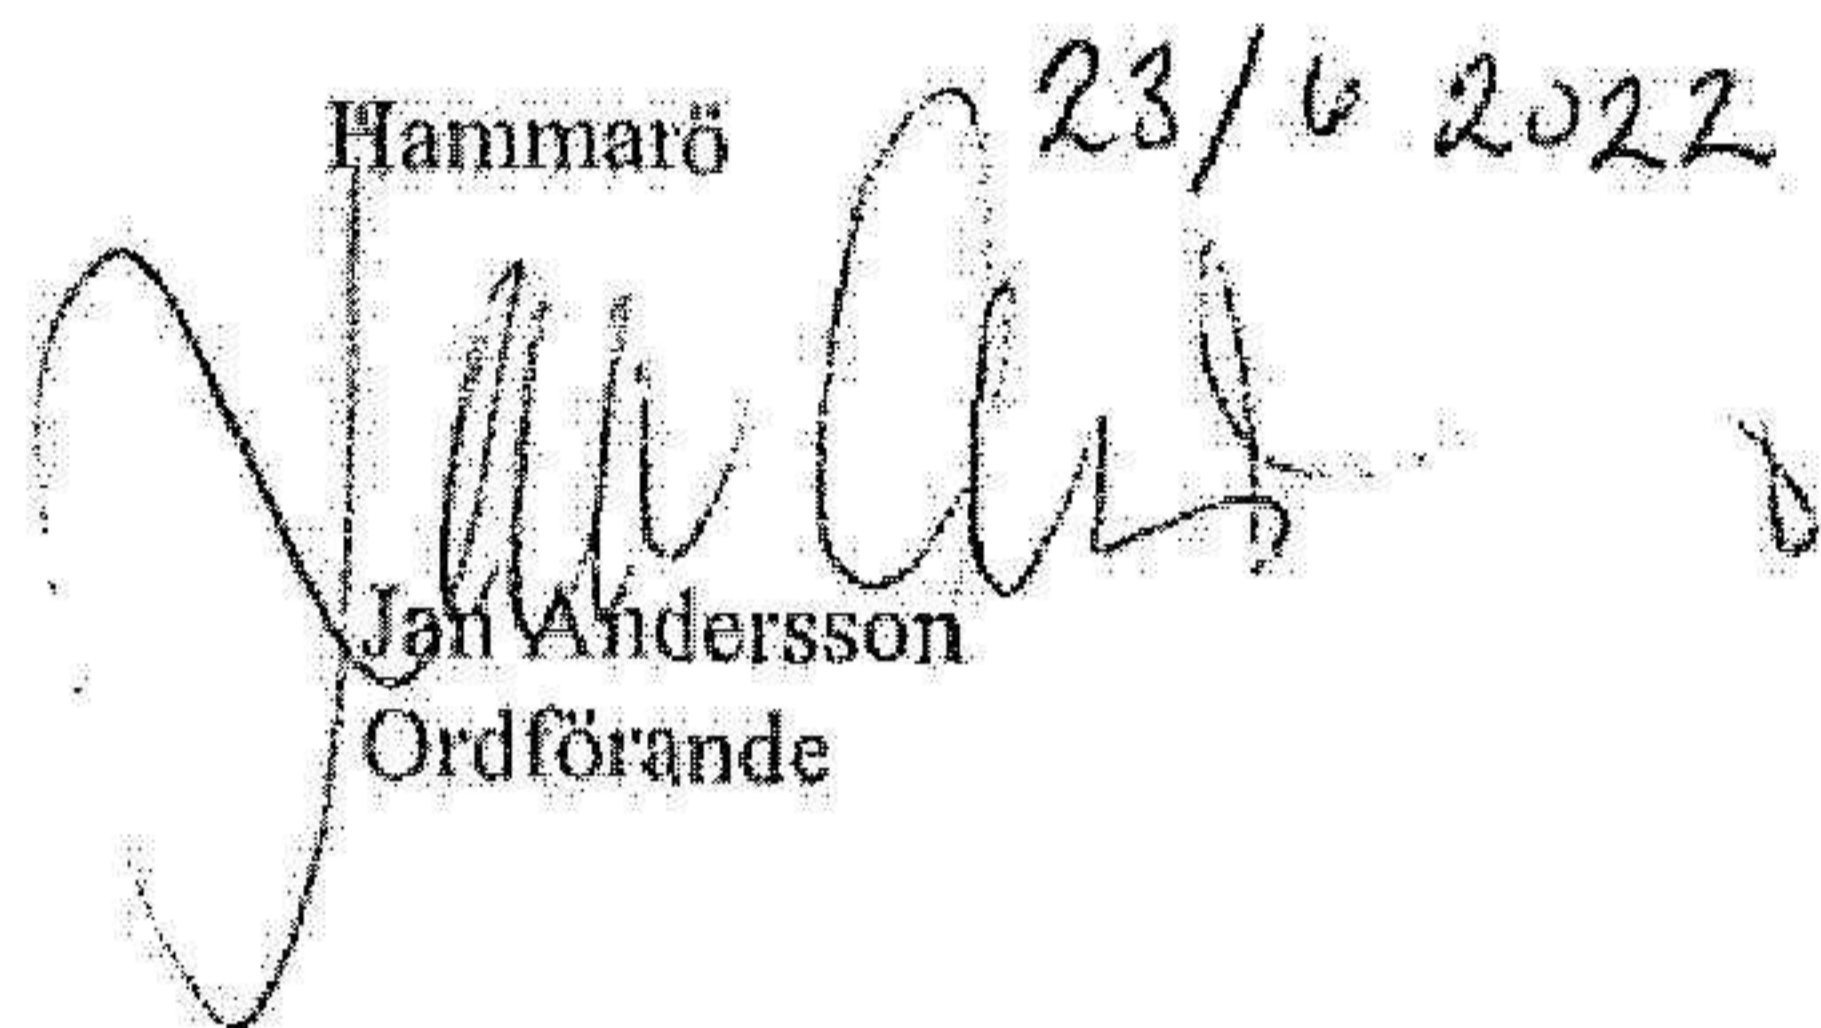 Hammarö 23/6 2022
Jan Andersson
Ordförande